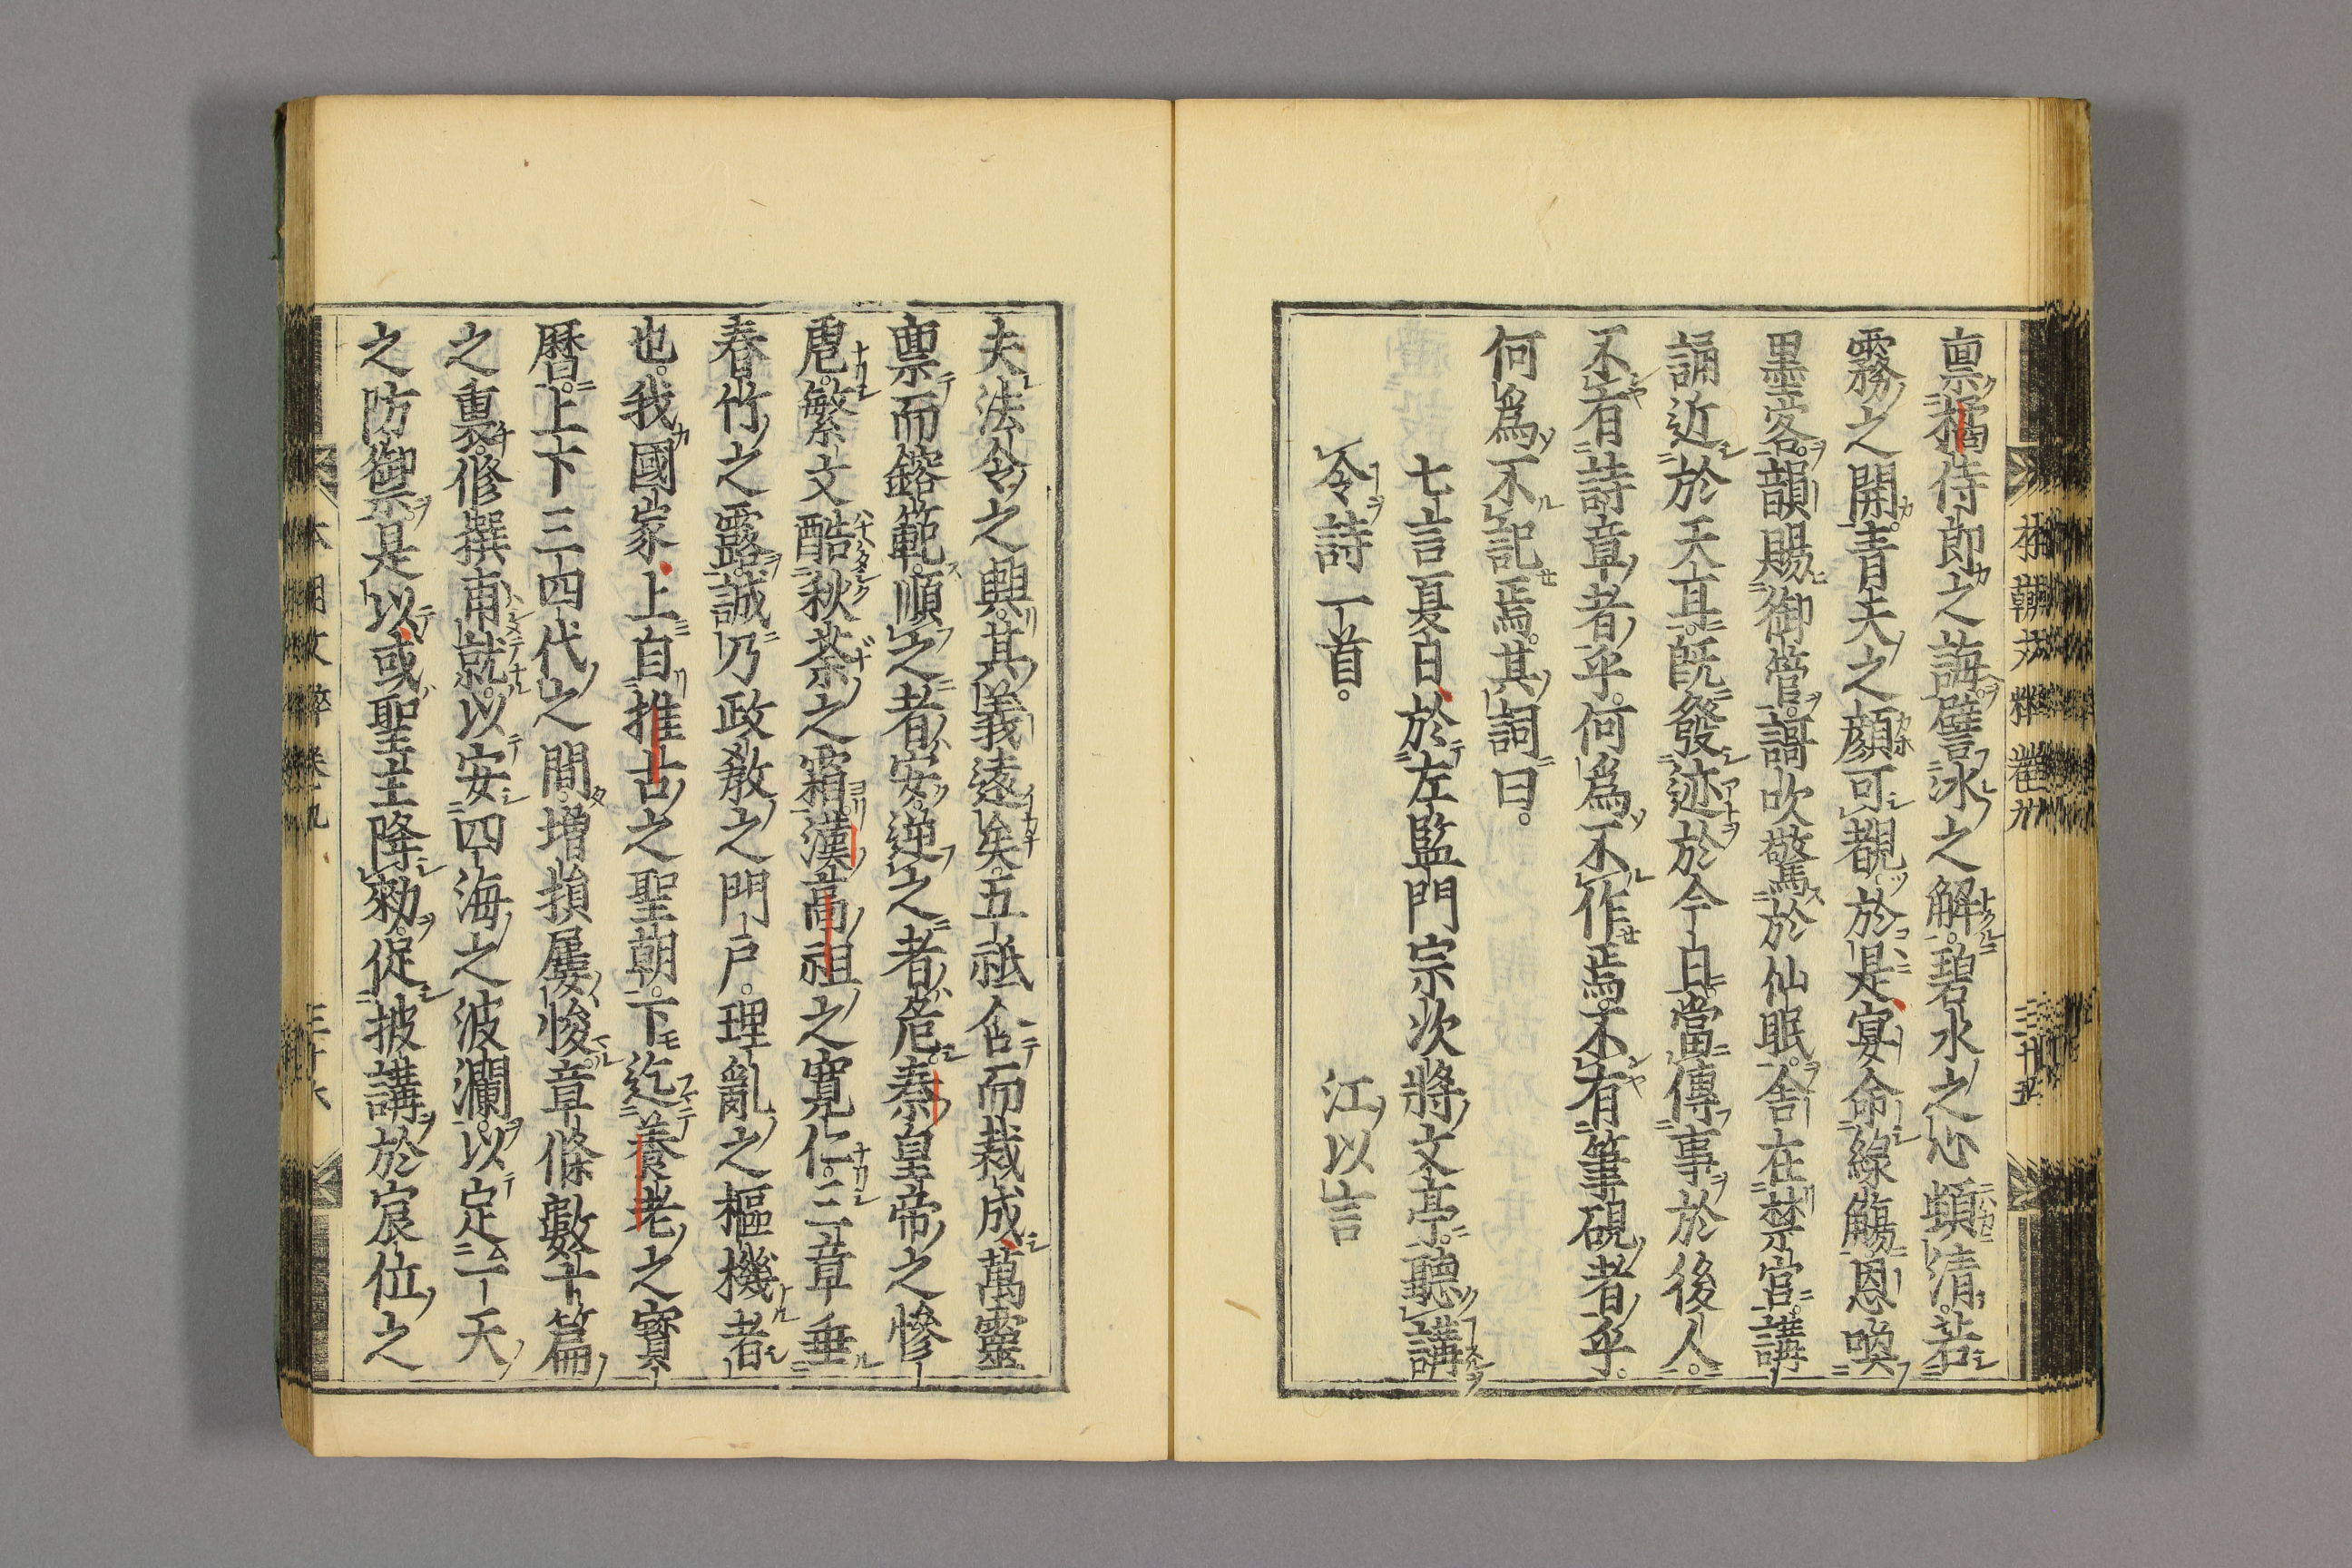 禀橘侍郎之誨譬氷之解碧水之心頓清若
霧之開青天之顔可覩於是宴命綠觴恩喚
墨客韻賜御管謌吹驚於仙眠舎在禁宮講
誦近於天耳既發迹於今日當傳事於後人
不有詩章者乎何爲不作焉不有筆硯者乎
何爲不記焉其詞曰
七言夏日於左監門宗次將文亭聽講
令詩一首 江以言
夫法令之興其義遠矣五祇合而裁成萬靈
禀而鎔範順之者安逆之者危秦皇帝之慘
虐繁文酷秋荼之霜漢高祖之寬仁三章垂
春竹之露誠乃政教之門戸理亂之樞機者
也我國家上自推古之聖朝下迄養老之寳
暦上下三四代之間増損屢悛章條數十篇
之裏修撰甫就以安四海之波瀾以定一天
之防禦是以或聖主降勑促披講於宸位之
本朝文粹卷九 三十五
本朝文粹卷九 三十六